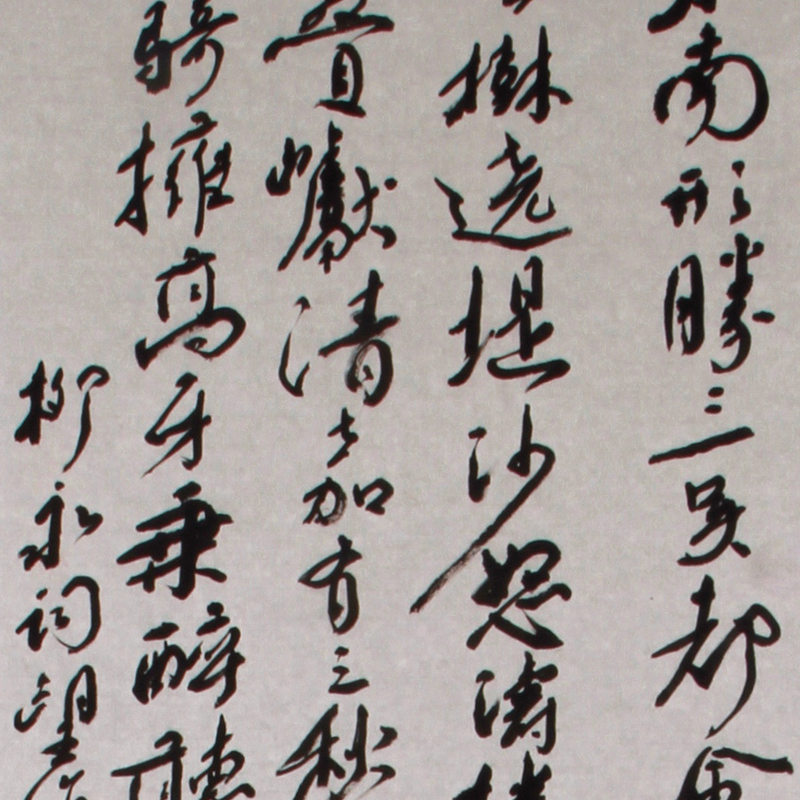 南形勝三吳都
樹遶堤沙怒濤
疊巘清嘉有三秋
騎擁高牙乘醉聽
柳永詞望